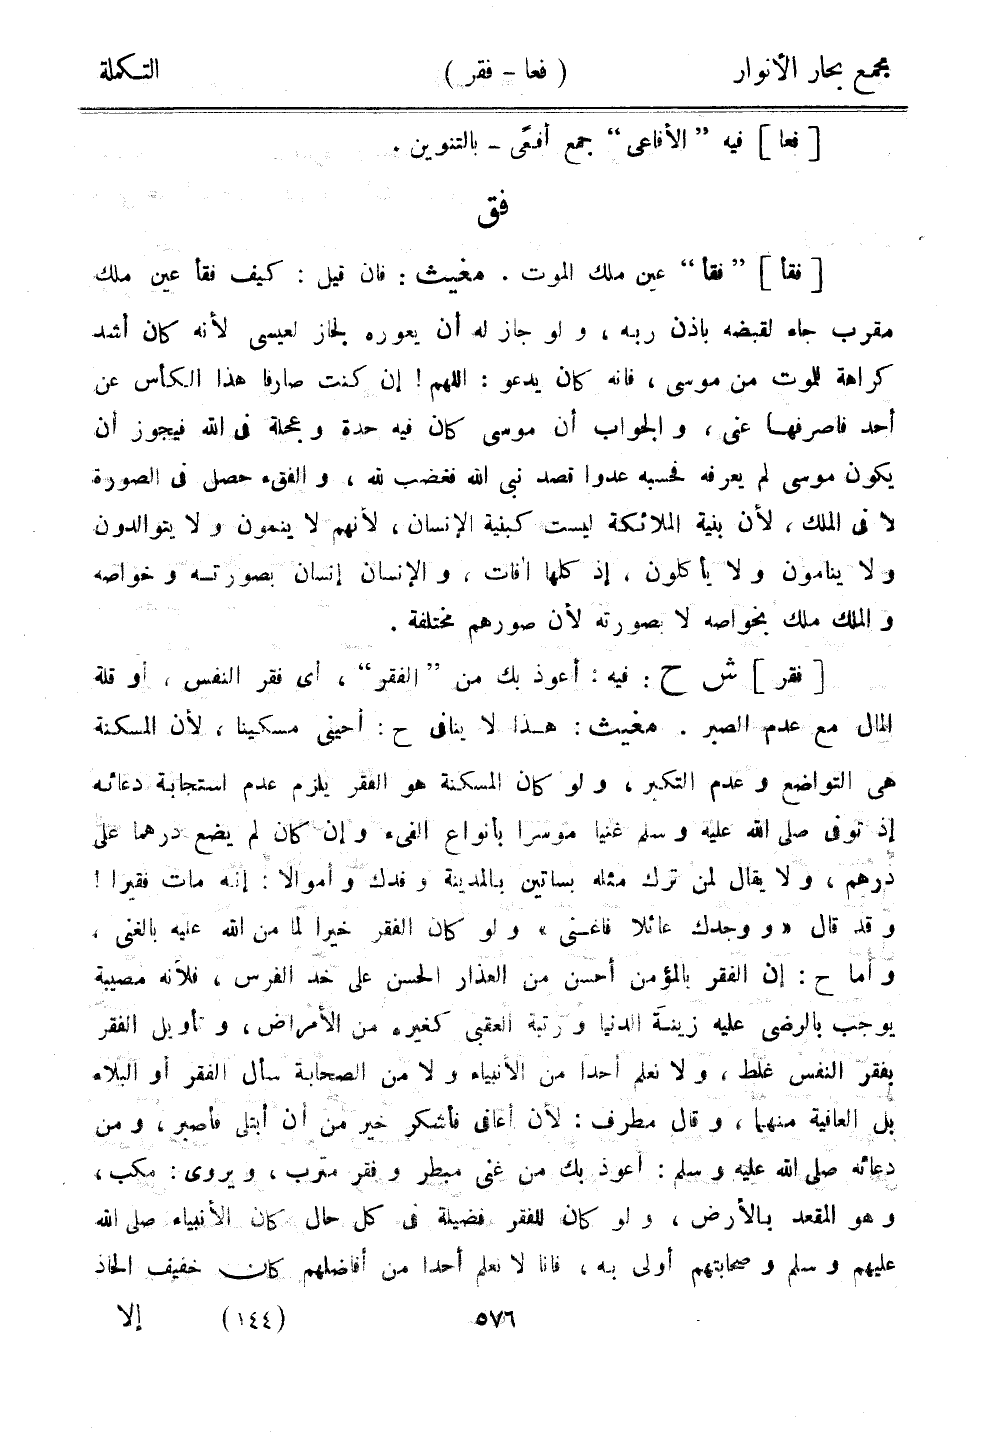 مجمع بحار الأنوار ( فعا - فقر ) التكملة
[ فعا ] فيه ”الأفاعى“ جمع أفعًى - بالتنوين .
فق
[ فقأ ] ”فقأ“ عين ملك الموت . مغيث : فان قيل : كيف فقأ عين ملك
مقرب جاء لقبضه باذن ربه ، و لو جاز له أن يعوره لجاز لعيسى لأنه كان أشد
كراهة للموت من موسى ، فانه كان يدعو : اللهم ! إن كنت صارفا هذا الكأس عن
أحد فاصرفها عنى ، و الجواب أن موسى كان فيه حدة و عجلة فى الله فيجوز أن
يكون موسى لم يعرفه فحسبه عدوا قصد نبى الله فغضب لله ، و الفقء حصل فى الصورة
لا فى الملك ، لأن بنية الملائكة ليست كبنية الإنسان ، لأنهم لا ينمون و لا يتوالدون
و لا ينامون و لا يأكلون ، إذ كلها آفات ، و الإنسان إنسان بصورته و خواصه
و الملك ملك بخواصه لا بصورته لأن صورهم مختلفة .
[ فقر ] ش ح : فيه : أعوذ بك من ”الفقر“ ، أى فقر النفس ، أو قلة
المال مع عدم الصبر . مغيث : هذا لا ينافى ح : أحينى مسكينا ، لأن المسكنة
هى التواضع و عدم التكبر ، و لو كان المسكنة هو الفقر يلزم عدم استجابة دعائه
إذ توفى صلى الله عليه و سلم غنيا موسرا بأنواع الفىء و إن كان لم يضع درهما على
درهم ، و لا يقال لمن ترك مثله بساتين بالمدينة و فدك و أموالا : إنه مات فقيرا !
و قد قال « و وجدك عائلا فاغنى » و لو كان الفقر خيرا لما من الله عليه بالغنى ،
و أما ح : إن الفقر بالمؤمن أحسن من العذار الحسن على خد الفرس ، فلأنه مصيبة
يوجب بالرضى عليه زينة الدنيا و رتبة العقبى كغيره من الأمراض ، و تأويل الفقر
بفقر النفس غلط ، و لا نعلم أحدا من الأنبياء و لا من الصحابة سأل الفقر أو البلاء
بل العافية منهما ، و قال مطرف : لأن أعافى فأشكر خير من أن أبتلى فأصبر ، و من
دعائه صلى الله عليه و سلم : أعوذ بك من غنى مبطر و فقر مترب ، و يروى : مكب ،
و هو المقعد بالأرض ، و لو كان للفقر فضيلة فى كل حال كان الأنبياء صلى الله
عليهم و سلم و صحابتهم أولى به ، فانا لا نعلم أحدا من أفاضلهم كان خفيف الحاذ
٥٧٦ (١٤٤) إلا